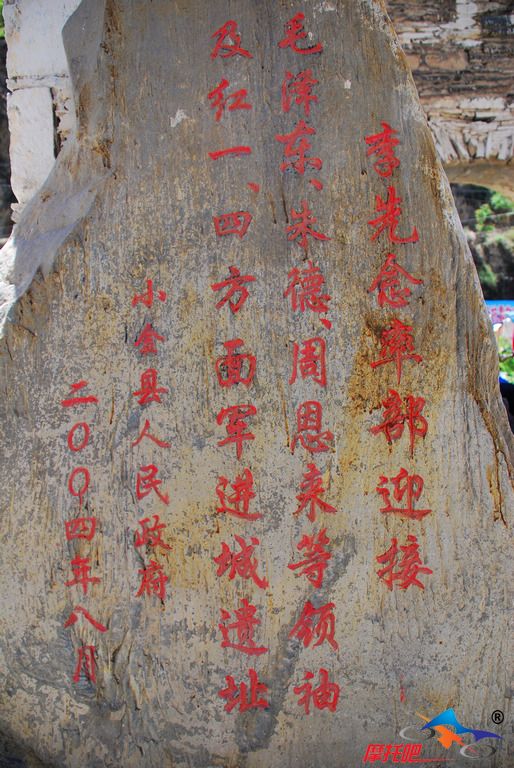 李先念率部迎接
毛泽东、朱德、周恩来等领袖
及红一、四方面军进城遗址
小金县人民政府
二00四年八月
摩托吧
®